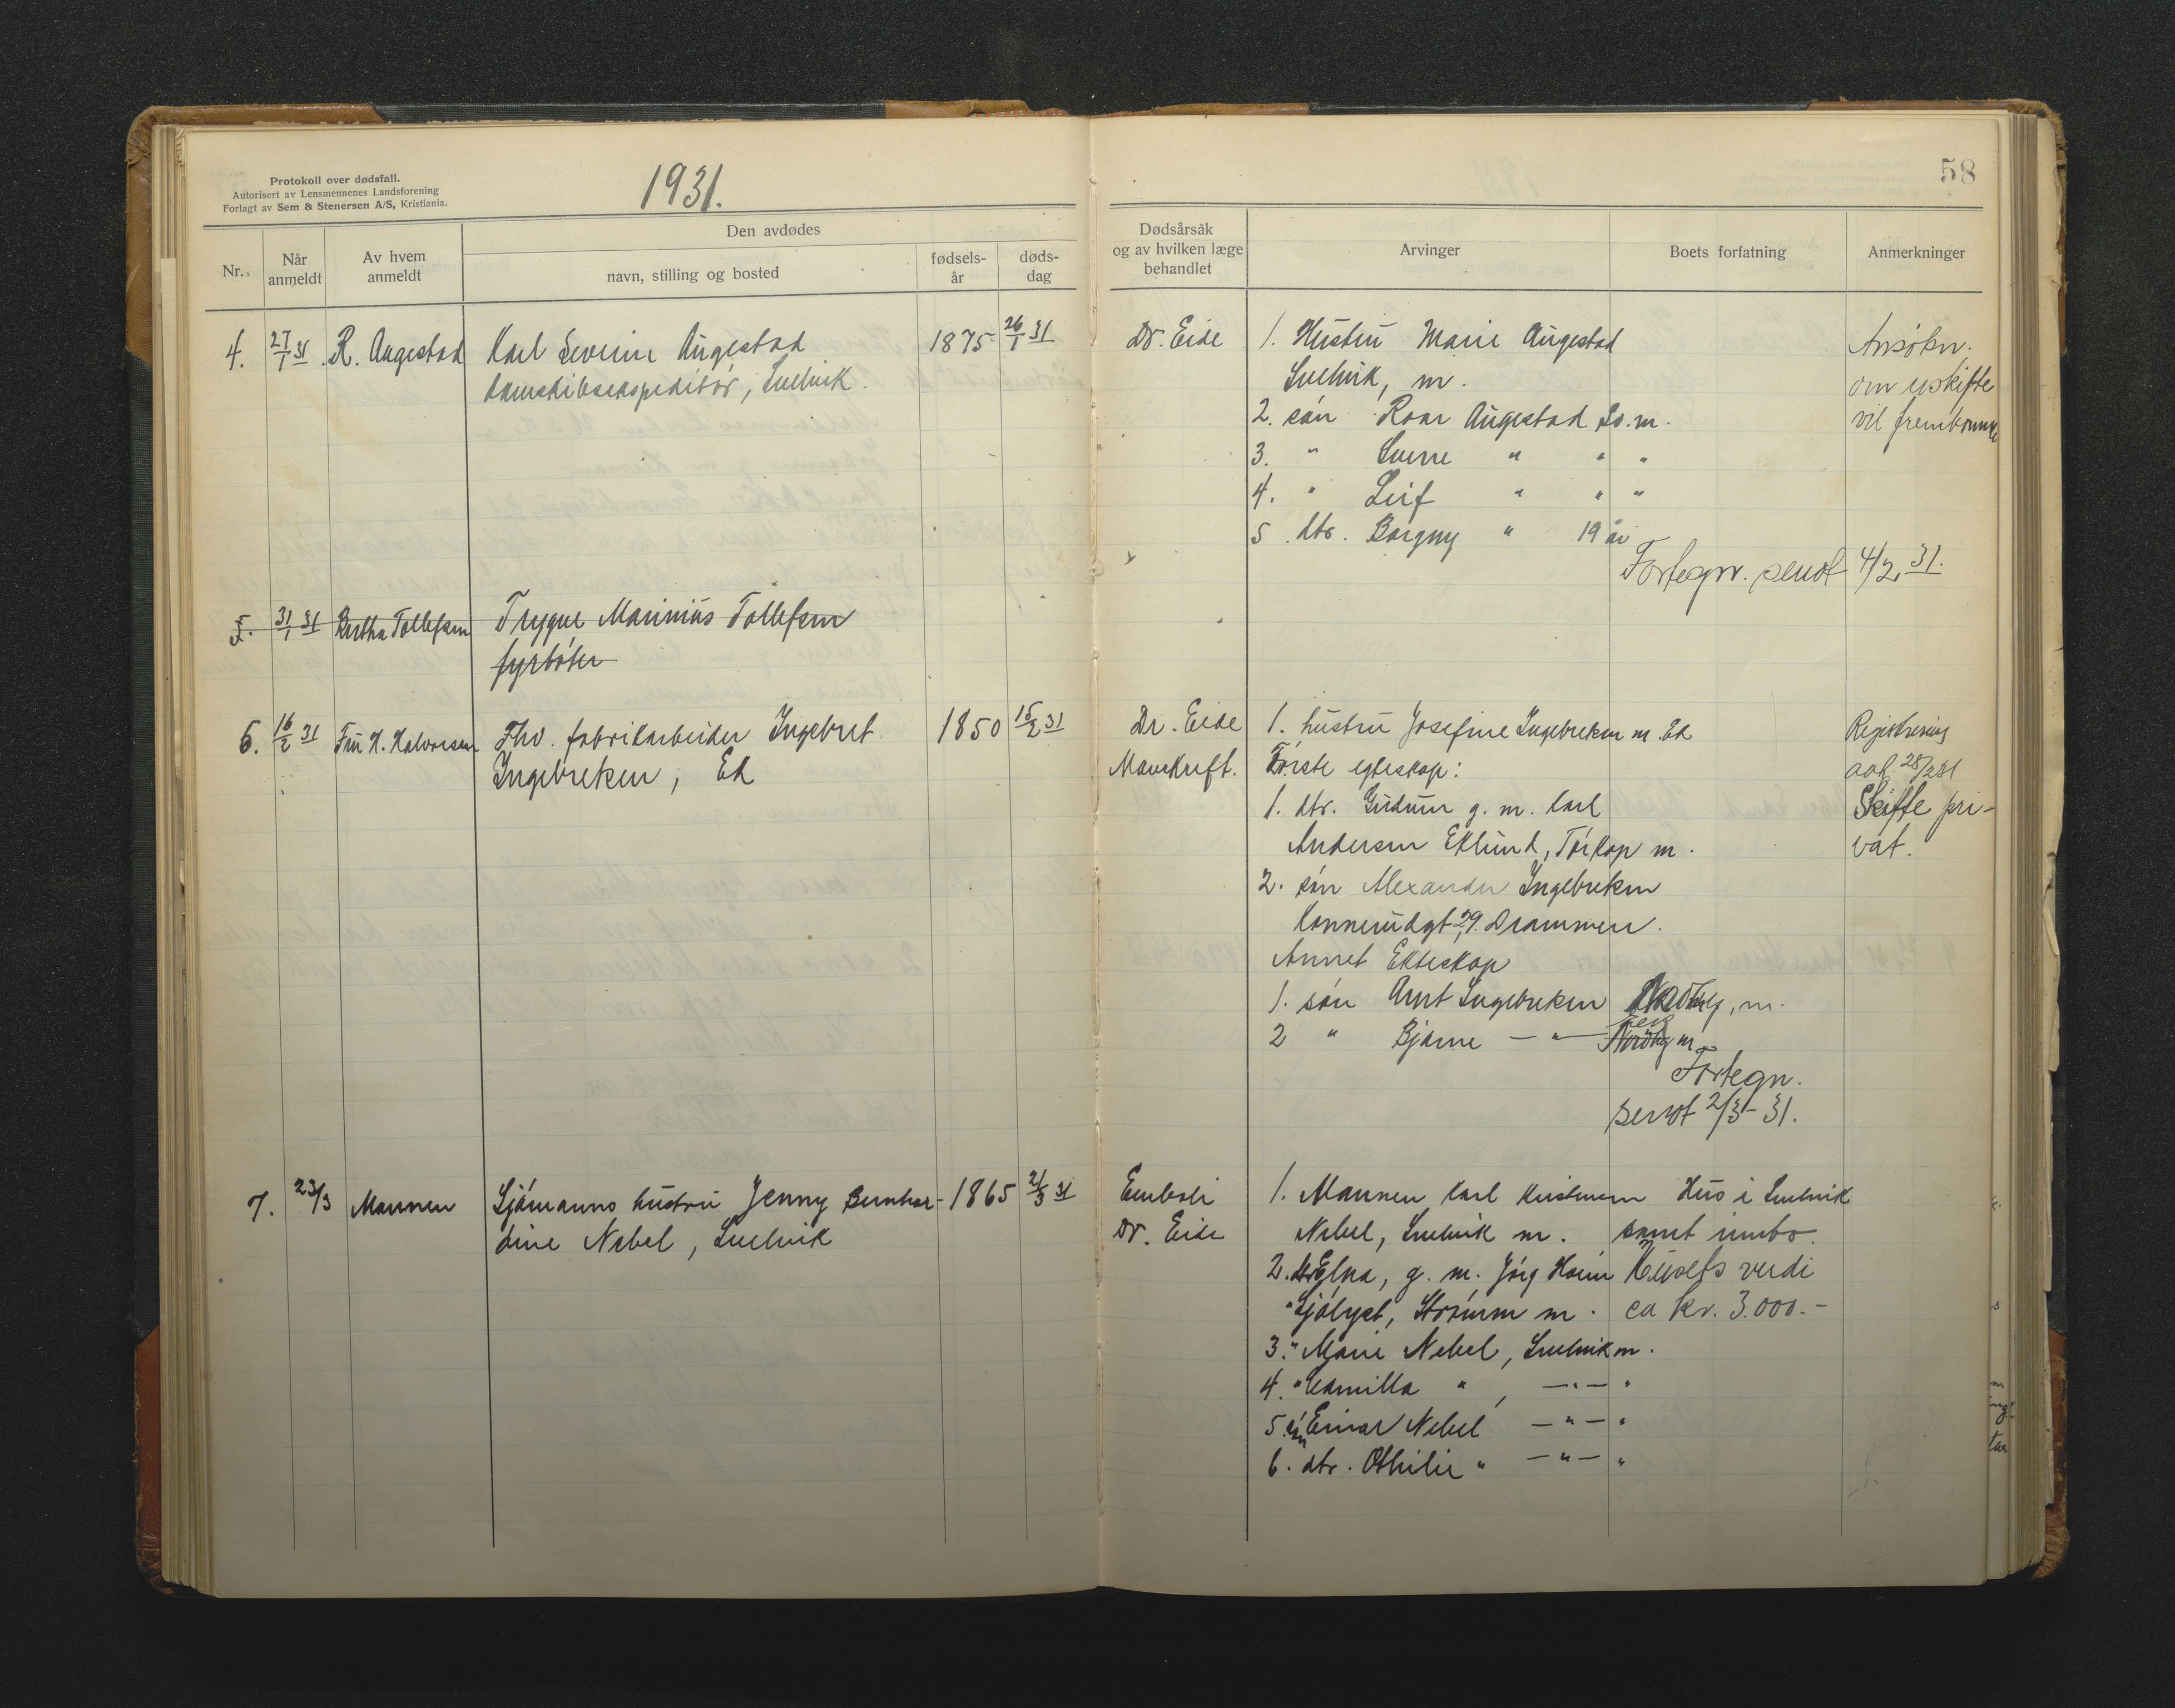 Protokoll over dødsfall.
Autorisert av Lensmennenes Landsforening
Forlagt av Sem & Stenersen A/S, Kristiania.
1931.
58
Nr.
Når anmeldt
Av hvem anmeldt
Den avdødes
navn, stilling og bosted
fødsels-år
døds-dag
Dødsårsak og av hvilken læge behandlet
Arvinger
Boets forfatning
Anmerkninger
4. 27/1 31 R. Augestad Karl Severin Augestad 1875 26/1 31 Dr. Eide 1. Hustru Marie Augestad Ansøkn.
damskibsekspeditør, Svelvik. Svelvik, m. om uskifte
2. søn Roar Augestad Sv. m. vil fremkomme
3. " Sverre " " "
4. " Leif " " "
5. dtr. Borgny " 19 år
Fortegn. sendt 4/2 31.
5. 31/1 31 Bertha Tollefsen Trygve Marinius Tollefsen
fyrbøter
6. 16/2 31 Fru H. Halvorsen Fhv. fabrikarbeider Ingebret 1850 15/2 31 Dr. Eide 1. hustru Josefine Ingebretsen m. Ed Registrering
Ingebretsen, Ed Mavekreft. Første egteskap: avh. 28/2 31
1. dtr. Gudrun g. m. Carl Skifte pri-
Andersen Eklund, Tørkop m. vat.
2. søn Alexander Ingebretsen
Konnerudgt 29. Drammen.
Annet Ekteskap
1. søn Arnt Ingebretsen m.
2 " Bjarne — " — m
Fortegn.
sendt 2/3 - 31.
7. 23/3 Mannen Sjømanns hustru Jenny Bernhar- 1865 21/3 31 Emboli 1. Mannen Karl Kristensen Hus i Svelvik
dine Nebel, Svelvik Dr. Eide Nebel, Svelvik m. samt innbo.
2. dtr Elna, g. m. Jørg Husets verdi
Sjølyst, Strømm m. ca kr. 3.000.-
3. " Marie Nebel, Svelvik m.
4. " Kamilla " , — " — "
5. søn Einar Nebel — " — "
6. dtr. Othilie " — " — "